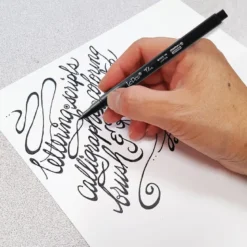 lettering scripts
calligraphy coloring
brush &